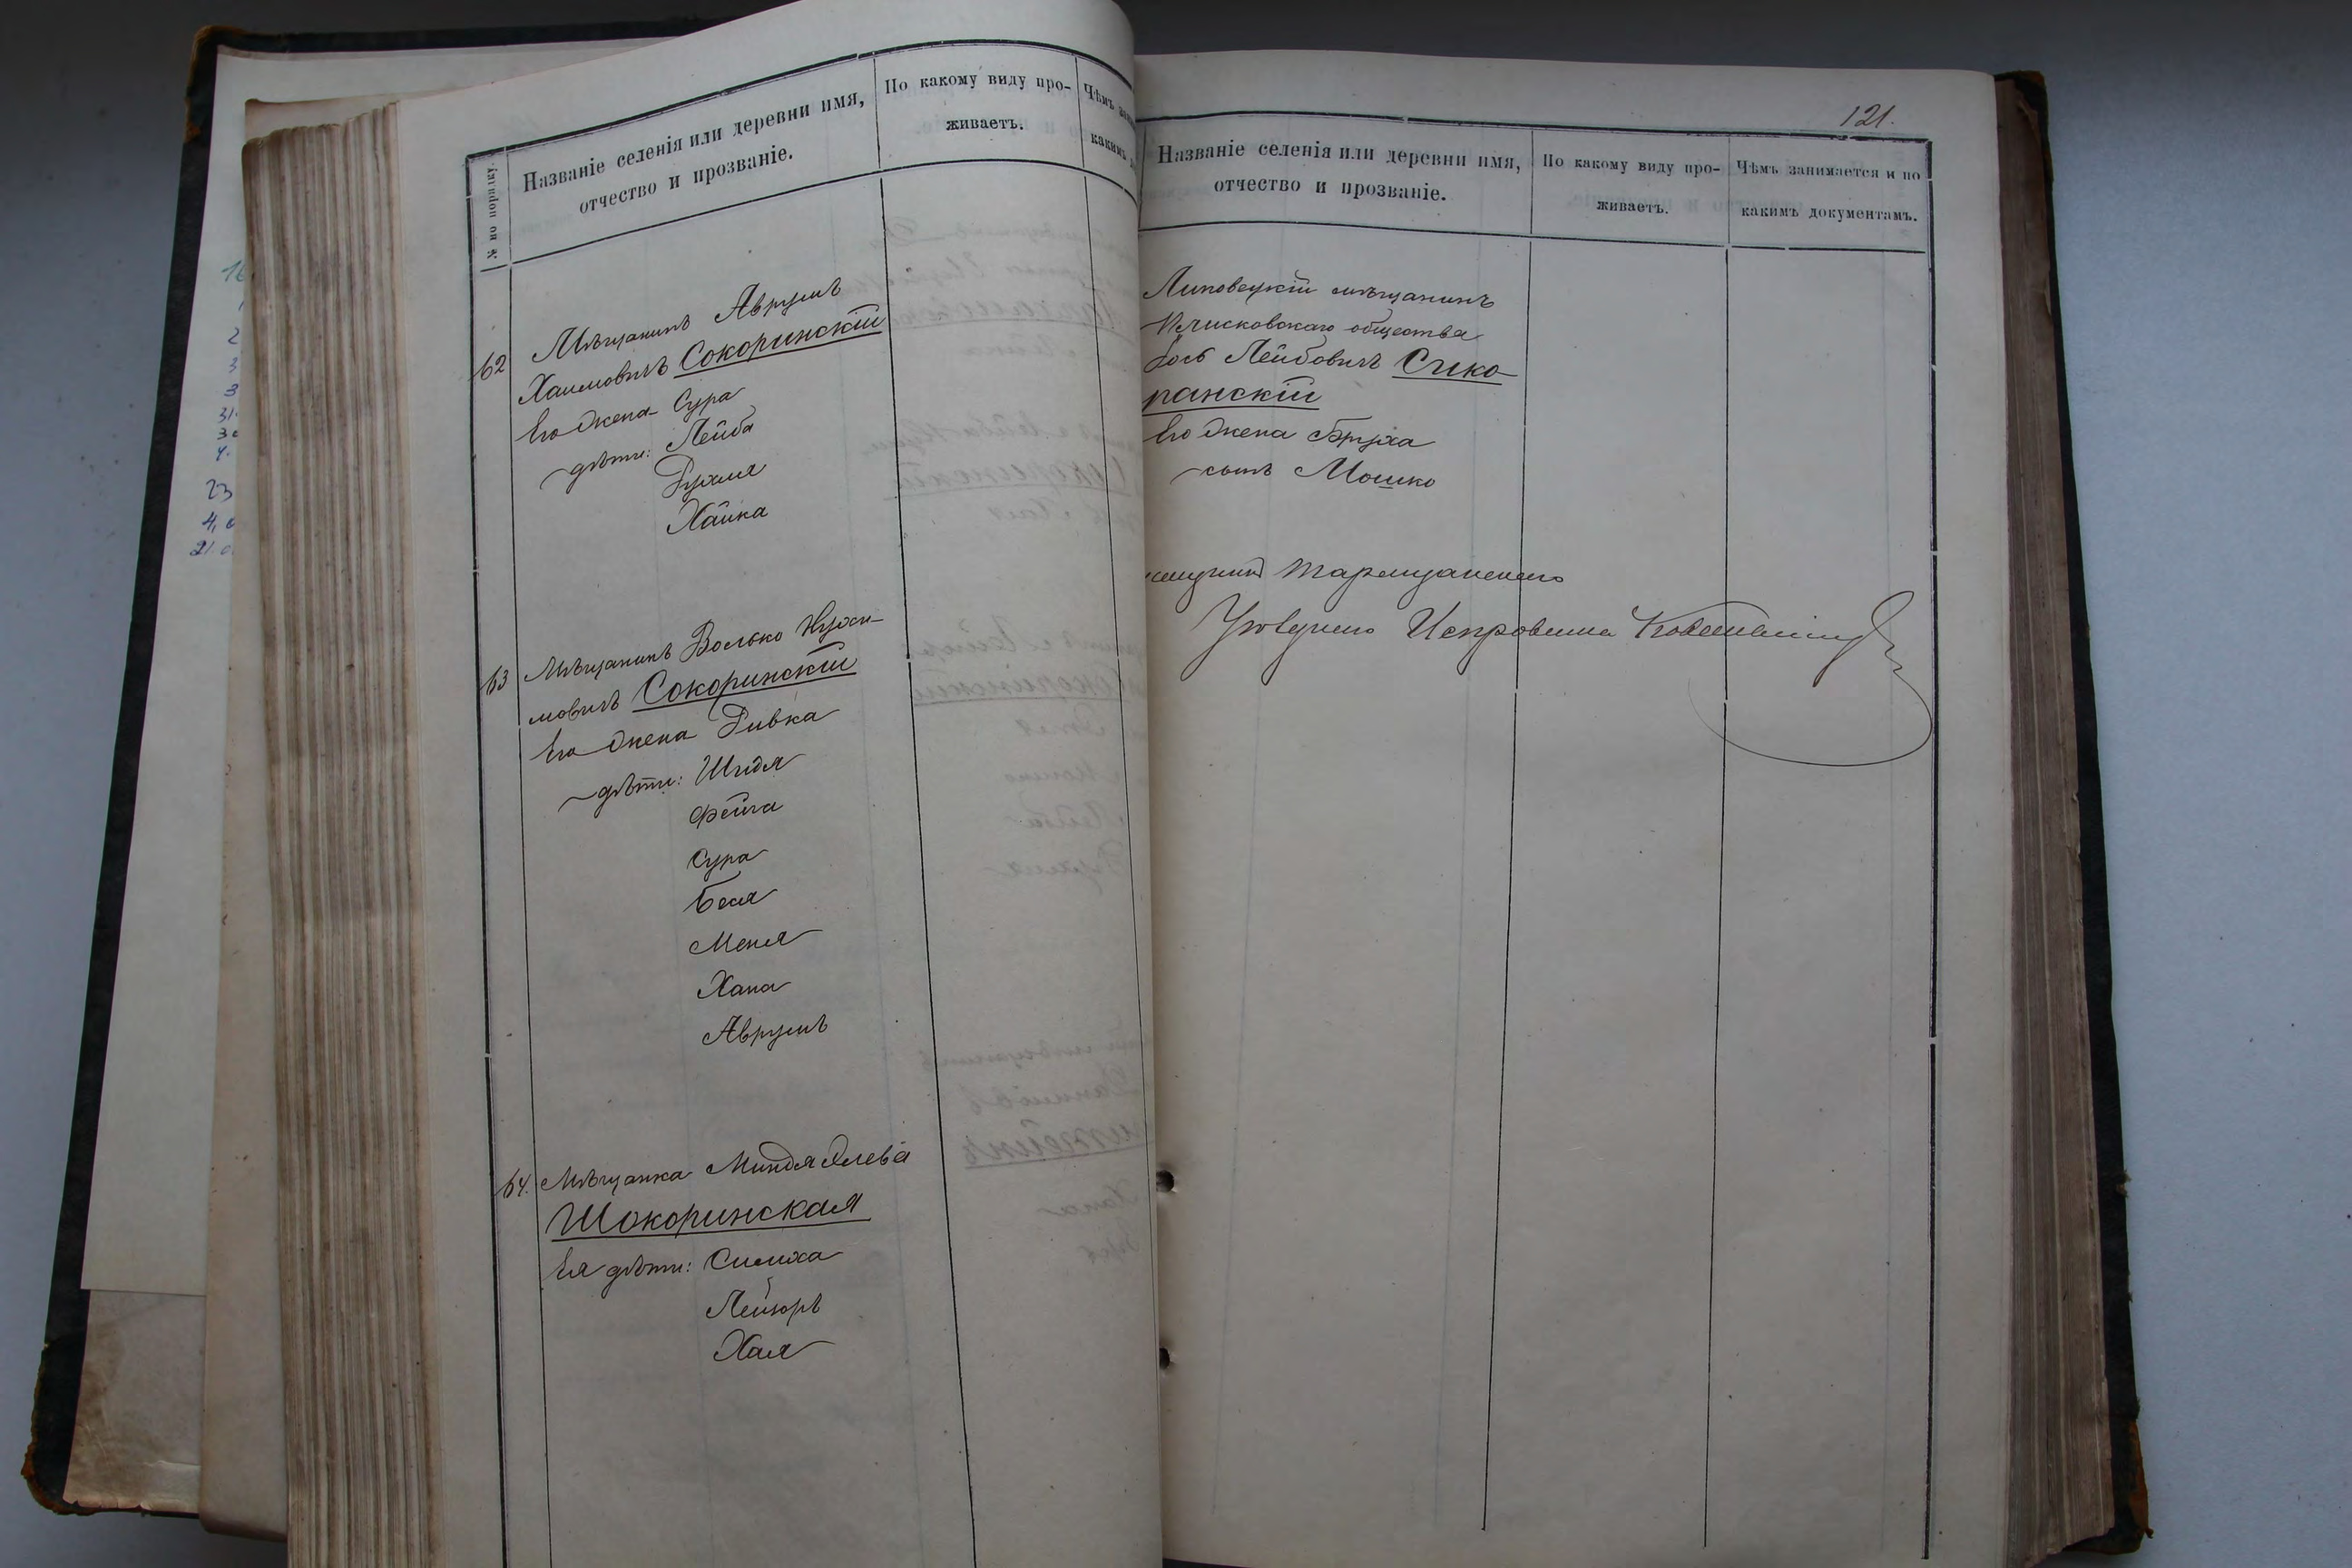 № по порядку.
Названіе селенія или деревни имя,
отчество и прозваніе.
По какому виду про-
живаетъ.
Чѣмъ
какимъ
62
Мѣщанинъ Аврумъ
Хаимовичъ Сокоринскій
Его жена Сура
дѣти: Лейба
Рухля
Хайка
63
Мѣщанинъ Волько Нухи-
мовичъ Сокоринскій
Его жена Ривка
дѣти: Шидя
Фейга
Сура
Бася
Меня
Хана
Аврумъ
64.
Мѣщанка Миндя
Шокоринская
Ея дѣти: Симха
Лейзоръ
Хая
121.
Названіе селенія или деревни имя,
отчество и прозваніе.
По какому виду про-
живаетъ.
Чѣмъ занимается и по
какимъ документамъ.
Липовецкій мѣщанинъ
общества
Лейбовичъ Сико-
ранскій
Его жена Бруха
сынъ Мошко
Таращанскаго
Уѣзднаго Исправника